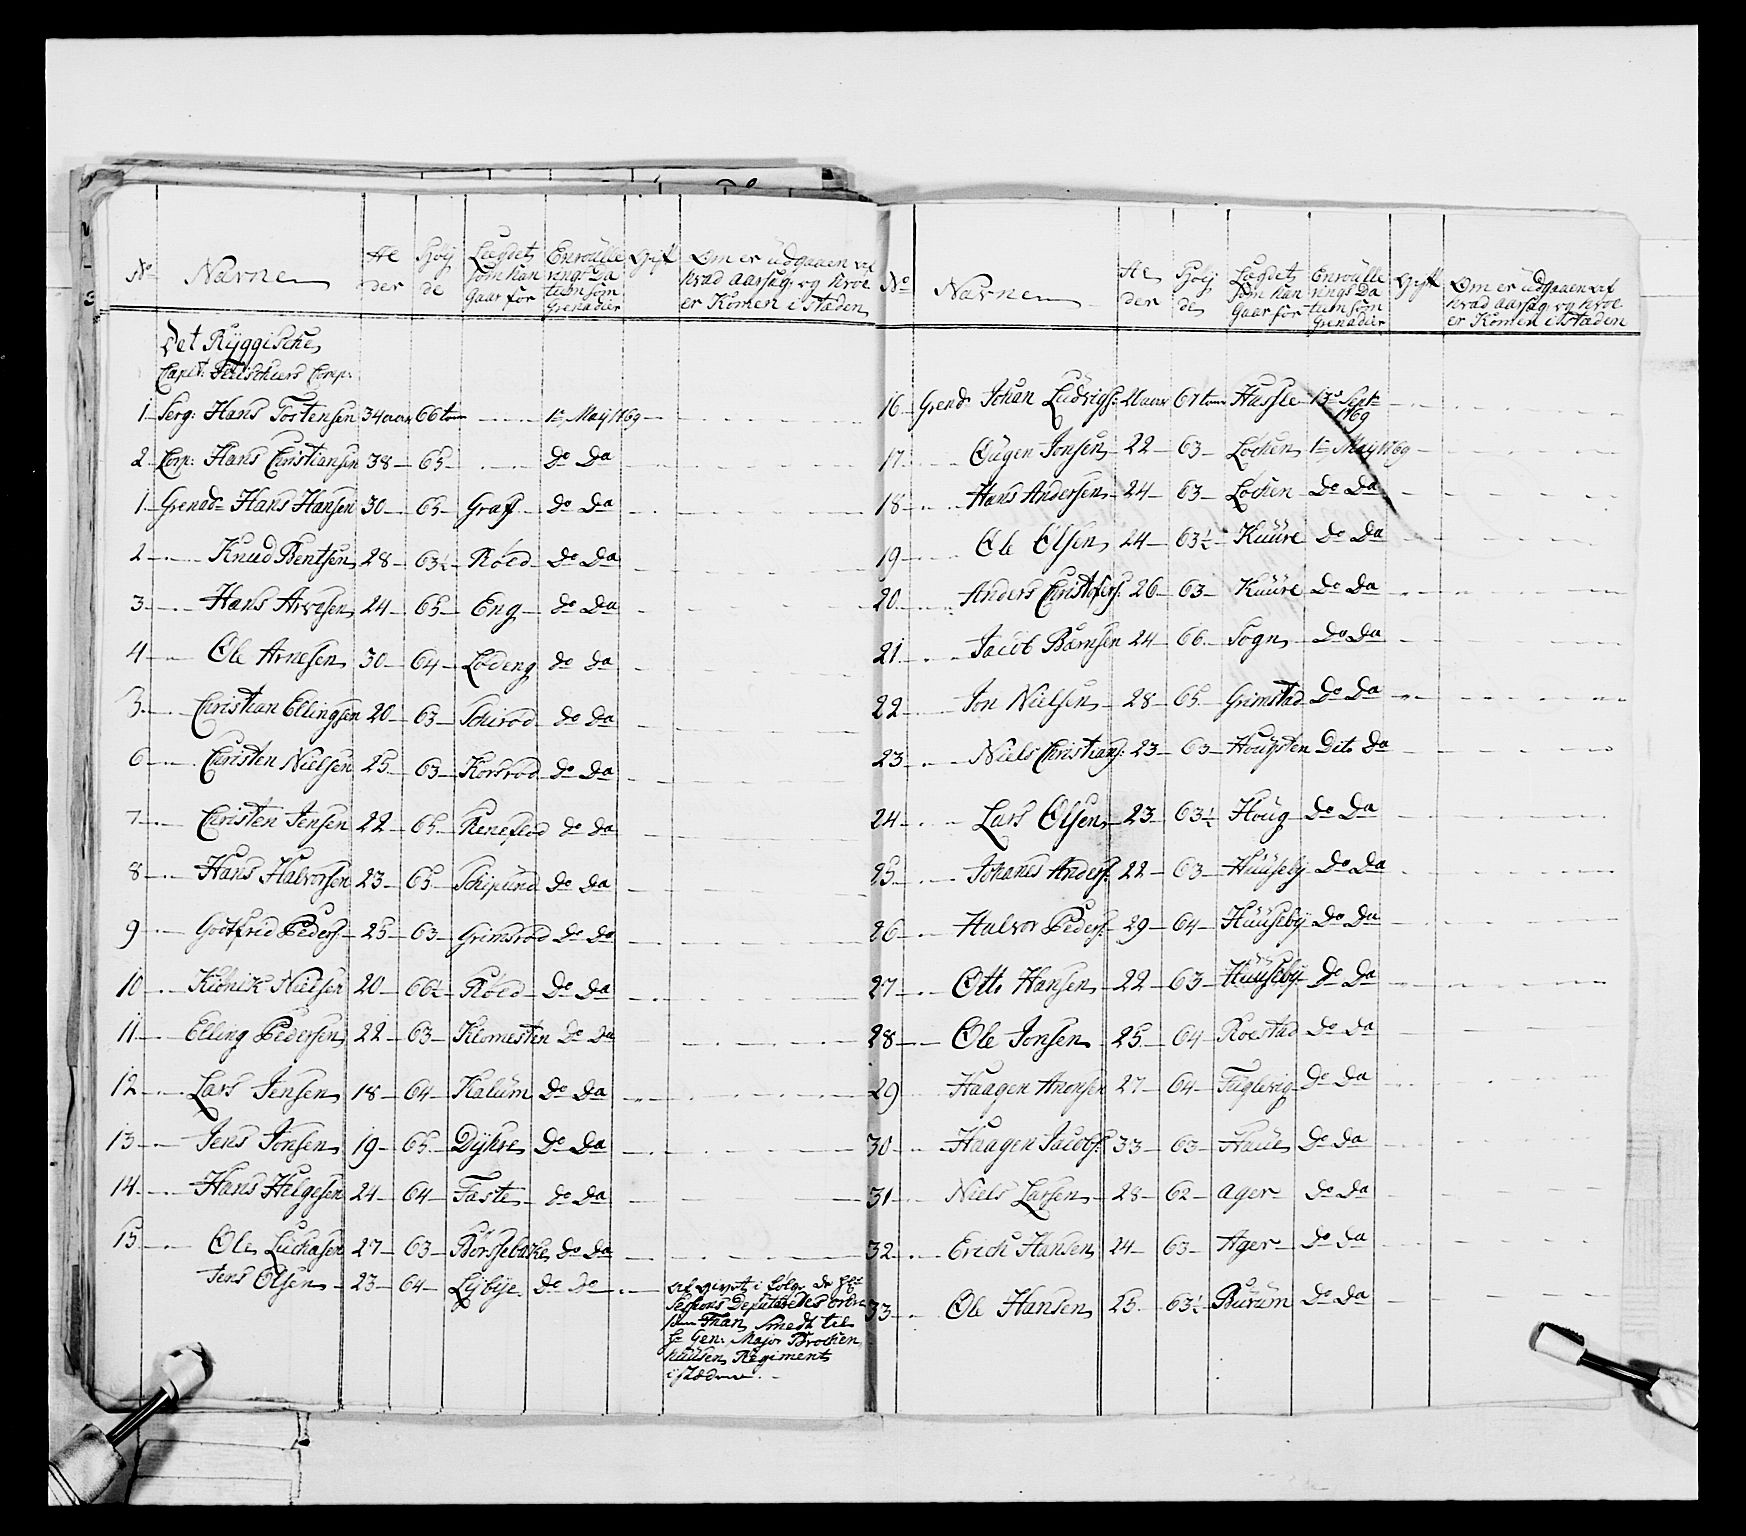 No Navne Al der Høy de Lægdet som han Gaar for Enroulle rings Da tum som Grenadier Gift Om er udgaaen af hvad aarsag, og hvor er Komen i stæden
Det Ryggische
Capt: Comp:
1 Serg: Hans Tostensen 34 aar 66 tom 1te May 1769
2 Corp: Hans Christiansen 38 65 Do Da
1 Grenad: Hans Hansen 30 65 Graff Do Da
2 Knud Bentsen 28 63½ Röed Do Da
3 Hans Arvesen 24 65 Eng Do Da
4 Ole Arnesen 30 64 Lodeng Do Da
5 Christian Ellingsen 20 63 Do Da
6 Christen Nielsen 25 63 Korsrod Do Da
7 Christen Jensen 22 65 Do Da
8 Hans Halvorsen 23 65 Do Da
9 Gotfried Peders: 25 63 Grimsrød Do Do
10 Nielsen 20 66½ Röed Do Da
11 Elling Pedersen 22 63 Klomesten Do Da
12 Lars Jensen 18 64 Kalum Do Da
13 Jens Jonsen 19 65 Dykre Do Da
14 Hans Helgesen 24 64 Faste Do Da
15 Ole Luckasen 27 63 Börssebakke Do Da
Jens Olsen 23 64 Lybye Do Do af givet i følge de
Sessions Deputeredes
Smedt til
Hr Gen: Major Brocken
husen Regiment
i stædene
No Navne Al der Høy de Lægdet som han Gaar for Enroulle rings Da tum som Grenadier Gift Om er udgaaen af hvad aarsag, og hvor er Komen i stæden
16 Grend: Johan Ludvigs: 21 aar 67 tom Hafsle 13de Septr
1769
17 Ougen Jonsen 22 63 Locken 1te May 1769
18 Hans Andersen 24 63 Locken Do Da
19 Ole Olsen 24 63½ Kuure Do Da
20 Anders Christofers: 26 63 Kuure Do Da
21 Jacob Bærnsen 24 66 Sogn Do Da
22 Jon Nielsen 28 65 Grimstad Do Da
23 Niels Christians: 23 63 Hougsten Dito Da
24 Lars Olsen 23 63½ Houg Do Da
25 Johanes Anders: 22 63 Huuseby Do Da
26 Halvor Peders: 29 64 Huuseby Do Da
27 Otto Hansen 22 63 Huuseby Do Da
28 Ole Jonsen 25 64 Roestad Do Da
29 Haagen Anonsen 27 64 Fuglevig Do Da
30 Haagen Jacobs: 33 63 Haue Do Da
31 Niels Larsen 28 62 Ager Do Da
32 Erich Hansen 24 63 Ager Do Da
33 Ole Hansen 25 63½ Burum Do Da